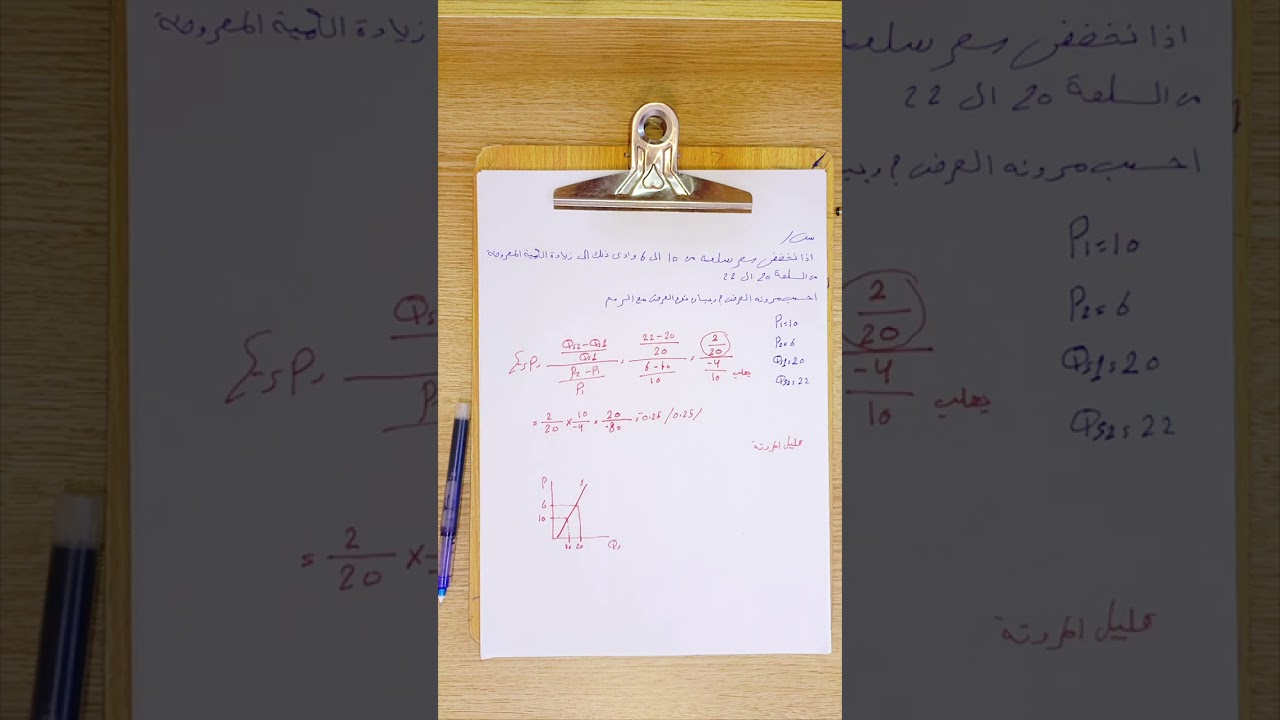 س١/
اذا نخفض سعر سلعه من 10 الى 6 وادى ذلك الى زيادة الكمية المعروضة
من السلعة 20 الى 22
احسب مرونه العرض ? وبيان نوع العرض مع الرسم
P1=10
P2=6
Qs1=20
Qs2=22
EsP = ((Qs2-Qs1)/Qs1)/((P2-P1)/P1) = ((22-20)/20)/((6-10)/10) = (2/20)/(-4/10) يقلب
= 2/20 × 10/-4 = 20/-80 = -0.25 /0.25/
قليل المرونة
P
S
6
10
20
Qs